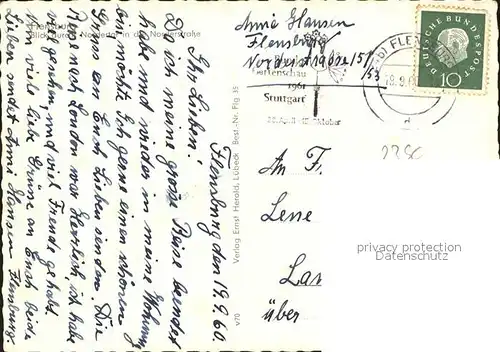 Flensburg
Blick durch Nordertor in die Norderstraße
Flensburg den 19.9.60.
Ihr Lieben!
Da ist meine große Reise beendet
habe und wieder in meine Wohnung
bin, möchte Ich gerne einen schönen
Gruss an Euch Lieben senden. Die
Reise nach London war Herrlich, ich habe
viel gesehen und viel Freude gehabt.
Nun viele liebe Grüsse an Euch beide
Lieben sendet Anni Hansen Flensburg
Verlag Ernst Herold, Lübeck Best.-Nr. Flg 35
v70
Anni Hansen
Flensburg
Norderstrasse 151/53
FLENSBURG
Gartenschau
1961
Stuttgart
DEUTSCHE BUNDESPOST
10
An F
Lene
Lan
über
privacy protection
Datenschutz